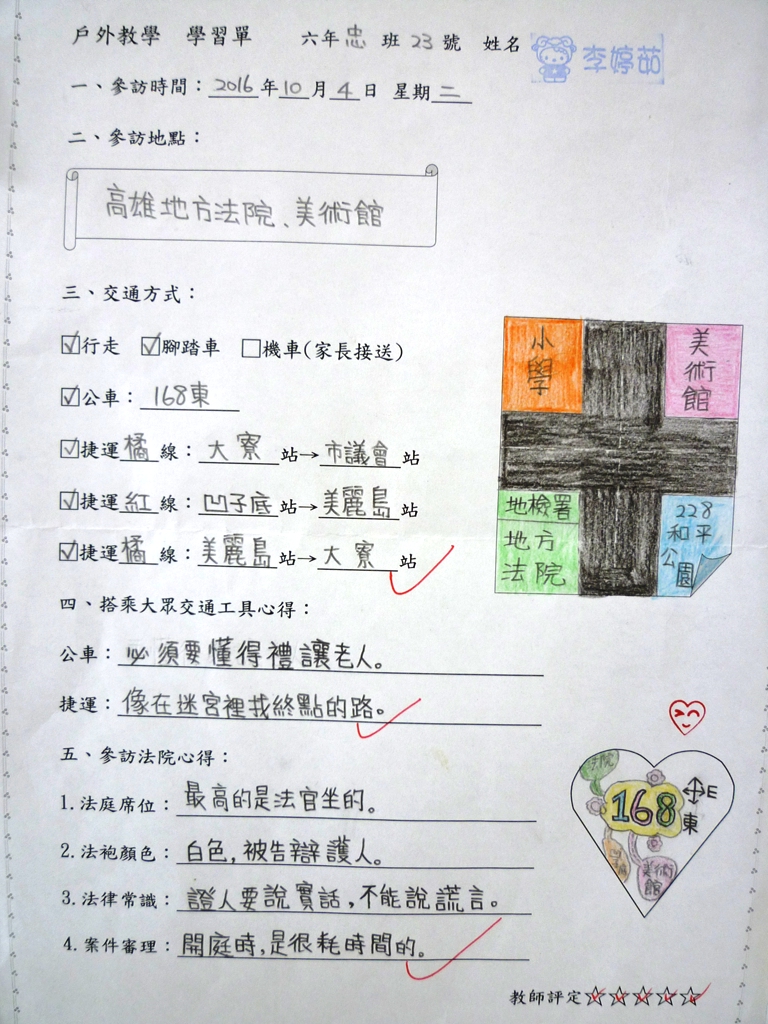 戶外教學 學習單 六年忠班23號 姓名 李婷茹
一、參訪時間：2016年10月4日 星期二
二、參訪地點：
高雄地方法院、美術館
三、交通方式：
☑行走 ☑腳踏車 ☐機車(家長接送)
☑公車：168東
☑捷運橘線：大寮站→市議會站
☑捷運紅線：凹子底站→美麗島站
☑捷運橘線：美麗島站→大寮站
小學
美術館
地檢署
地方法院
228和平公園
四、搭乘大眾交通工具心得：
公車：必須要懂得禮讓老人。
捷運：像在迷宮裡找終點的路。
五、參訪法院心得：
1.法庭席位：最高的是法官坐的。
2.法袍顏色：白色,被告辯護人。
3.法律常識：證人要說實話,不能說謊言。
4.案件審理：開庭時,是很耗時間的。
法院
168
E
東
美術館
教師評定☆☆☆☆☆